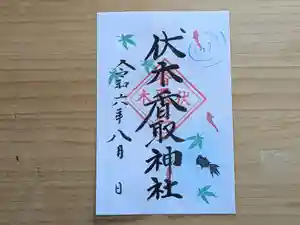 伏木香取神社
令和六年八月 日